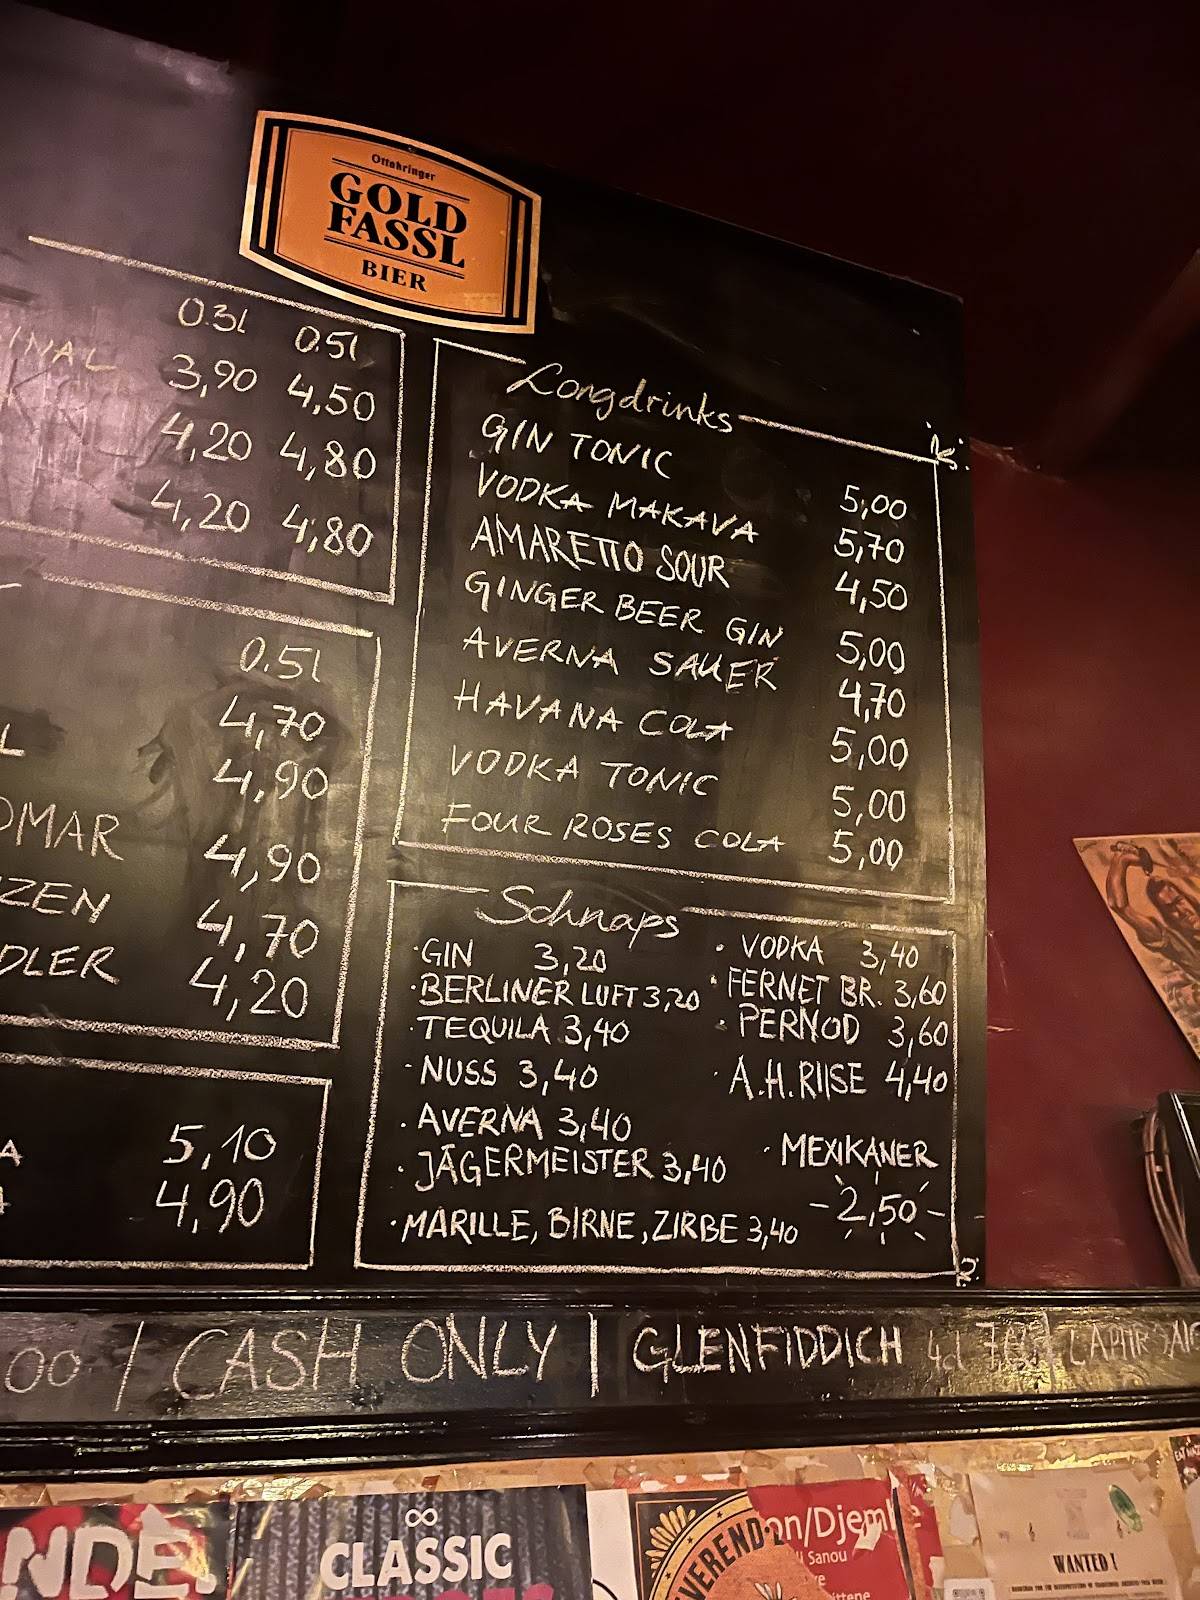 Ottakringer
GOLD
FASSL
BIER
0.3l 0.5l
INAL 3,90 4,50
4,20 4,80
4,20 4,80
0.5l
4,70
L 4,90
OMAR 4,90
ZEN 4,70
DLER 4,20
A 5,10
A 4,90
Longdrinks
GIN TONIC 5,00
VODKA MAKAVA 5,70
AMARETTO SOUR 4,50
GINGER BEER GIN 5,00
AVERNA SAUER 4,70
HAVANA COLA 5,00
VODKA TONIC 5,00
FOUR ROSES COLA 5,00
Schnaps
· GIN 3,20
· BERLINER LUFT 3,20
· TEQUILA 3,40
· NUSS 3,40
· AVERNA 3,40
· JÄGERMEISTER 3,40
· MARILLE, BIRNE, ZIRBE 3,40
· VODKA 3,40
· FERNET BR. 3,60
· PERNOD 3,60
· A.H. RIISE 4,40
· MEXIKANER
- 2,50 -
00 / CASH ONLY | GLENFIDDICH 4cl
NDE
CLASSIC
EVEREND
on/Djembe
Sanou
WANTED!